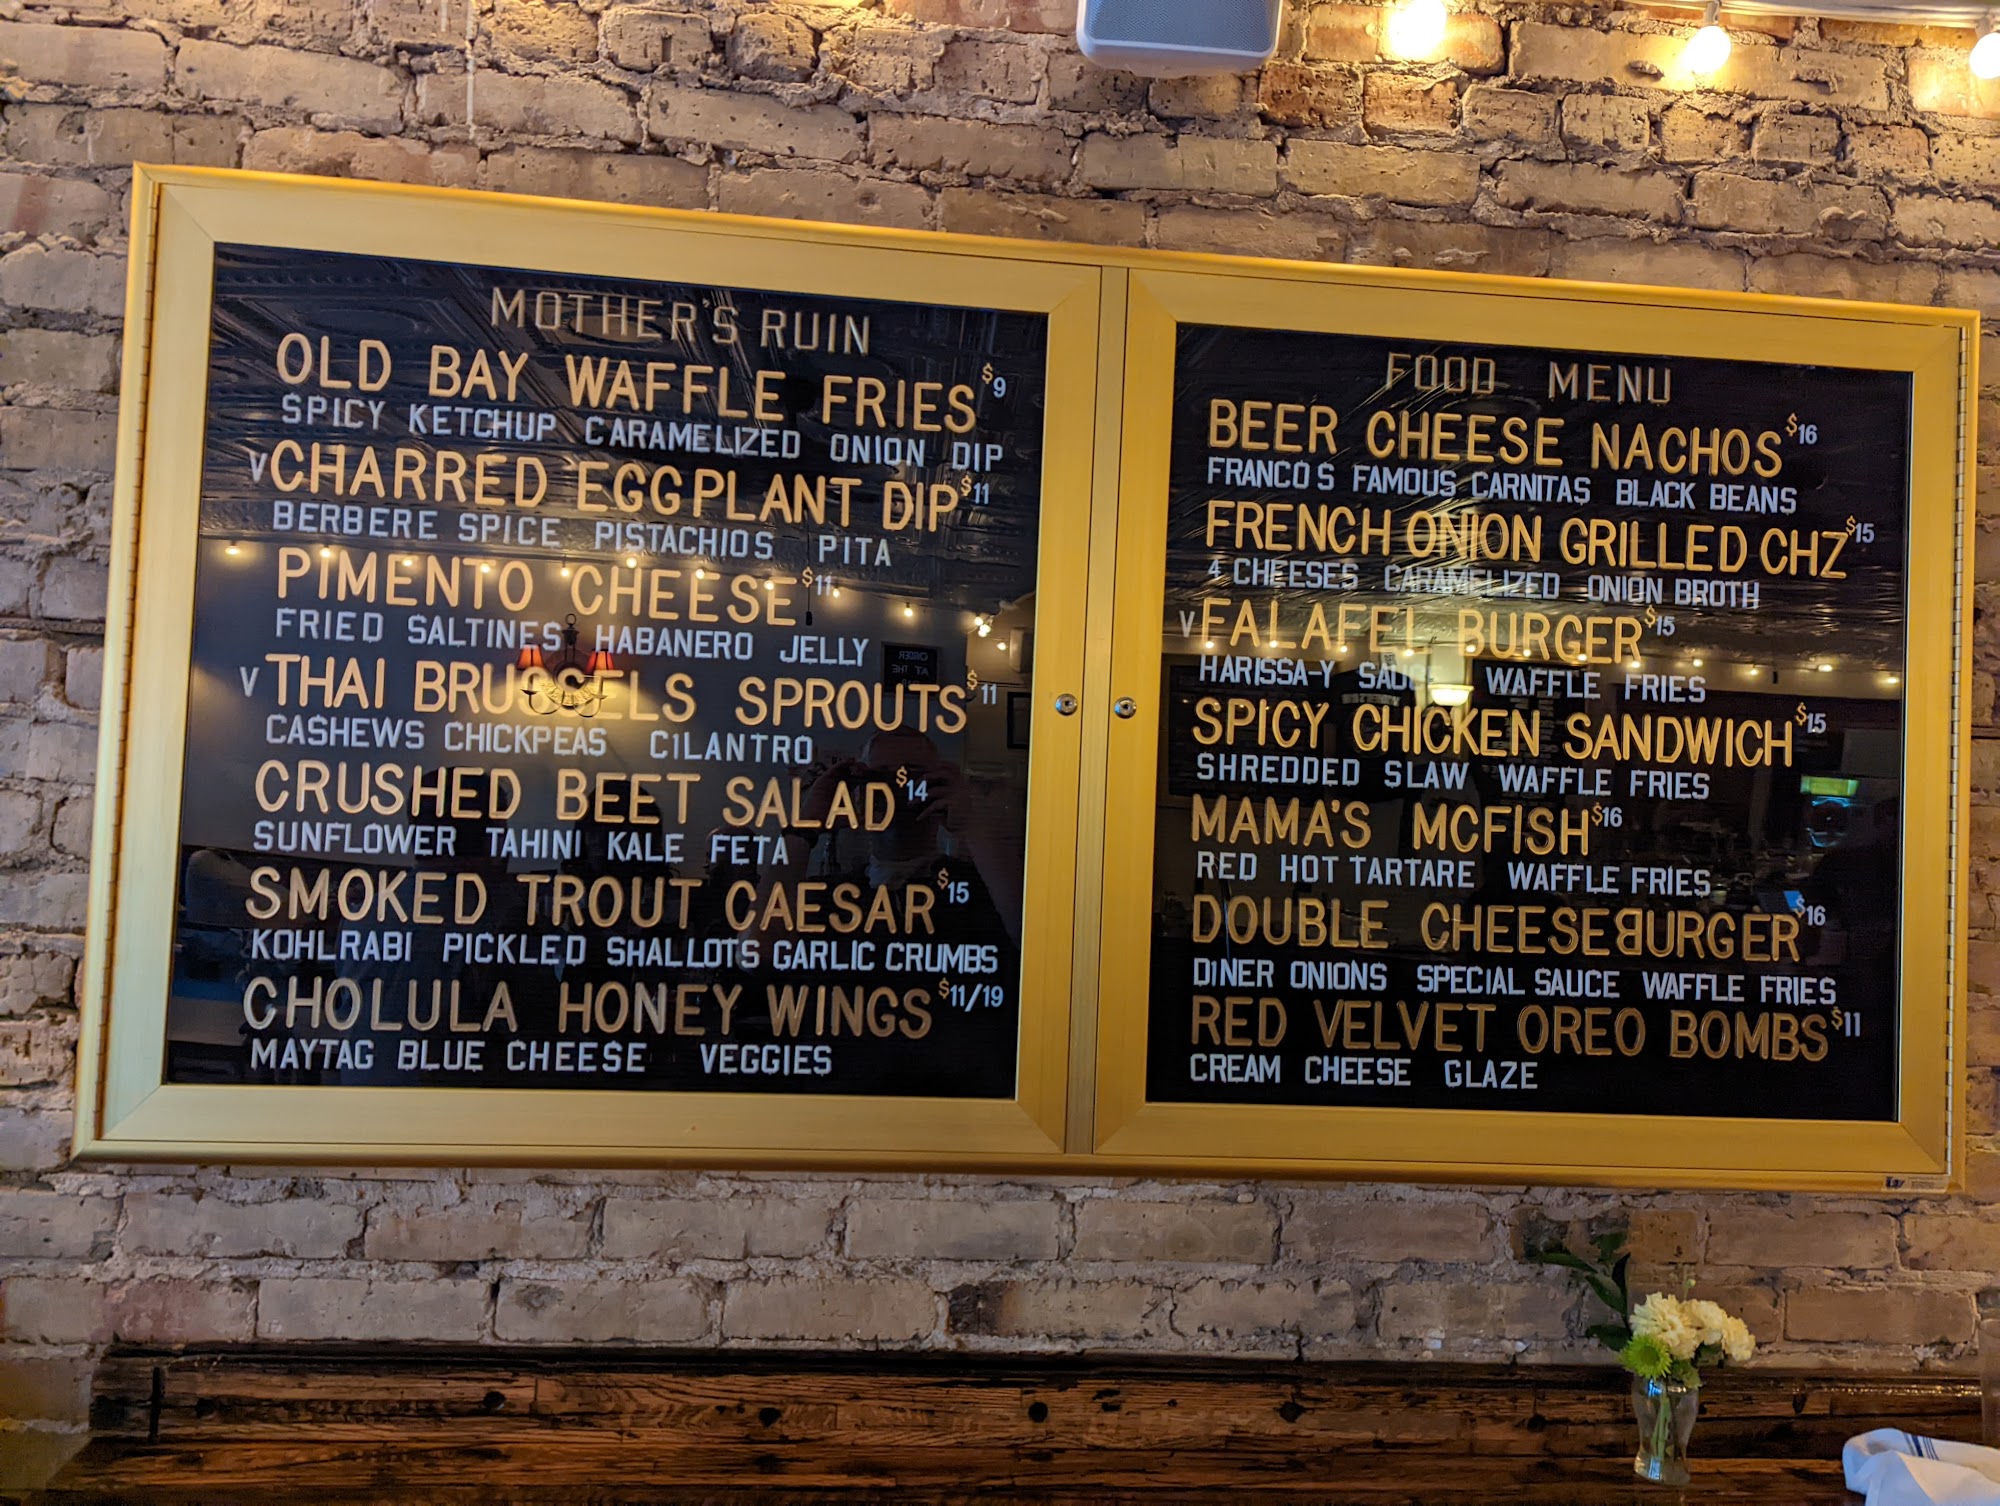 MOTHER'S RUIN
OLD BAY WAFFLE FRIES $9
SPICY KETCHUP CARAMELIZED ONION DIP
V CHARRED EGGPLANT DIP $11
BERBERE SPICE PISTACHIOS PITA
PIMENTO CHEESE $11
FRIED SALTINES HABANERO JELLY
V THAI BRUSSELS SPROUTS $11
CASHEWS CHICKPEAS CILANTRO
CRUSHED BEET SALAD $14
SUNFLOWER TAHINI KALE FETA
SMOKED TROUT CAESAR $15
KOHLRABI PICKLED SHALLOTS GARLIC CRUMBS
CHOLULA HONEY WINGS $11/19
MAYTAG BLUE CHEESE VEGGIES
FOOD MENU
BEER CHEESE NACHOS $16
FRANCO'S FAMOUS CARNITAS BLACK BEANS
FRENCH ONION GRILLED CHZ $15
4 CHEESES CARAMELIZED ONION BROTH
V FALAFEL BURGER $15
HARISSA-Y SAUCE WAFFLE FRIES
SPICY CHICKEN SANDWICH $15
SHREDDED SLAW WAFFLE FRIES
MAMA'S MCFISH $16
RED HOT TARTARE WAFFLE FRIES
DOUBLE CHEESEBURGER $16
DINER ONIONS SPECIAL SAUCE WAFFLE FRIES
RED VELVET OREO BOMBS $11
CREAM CHEESE GLAZE